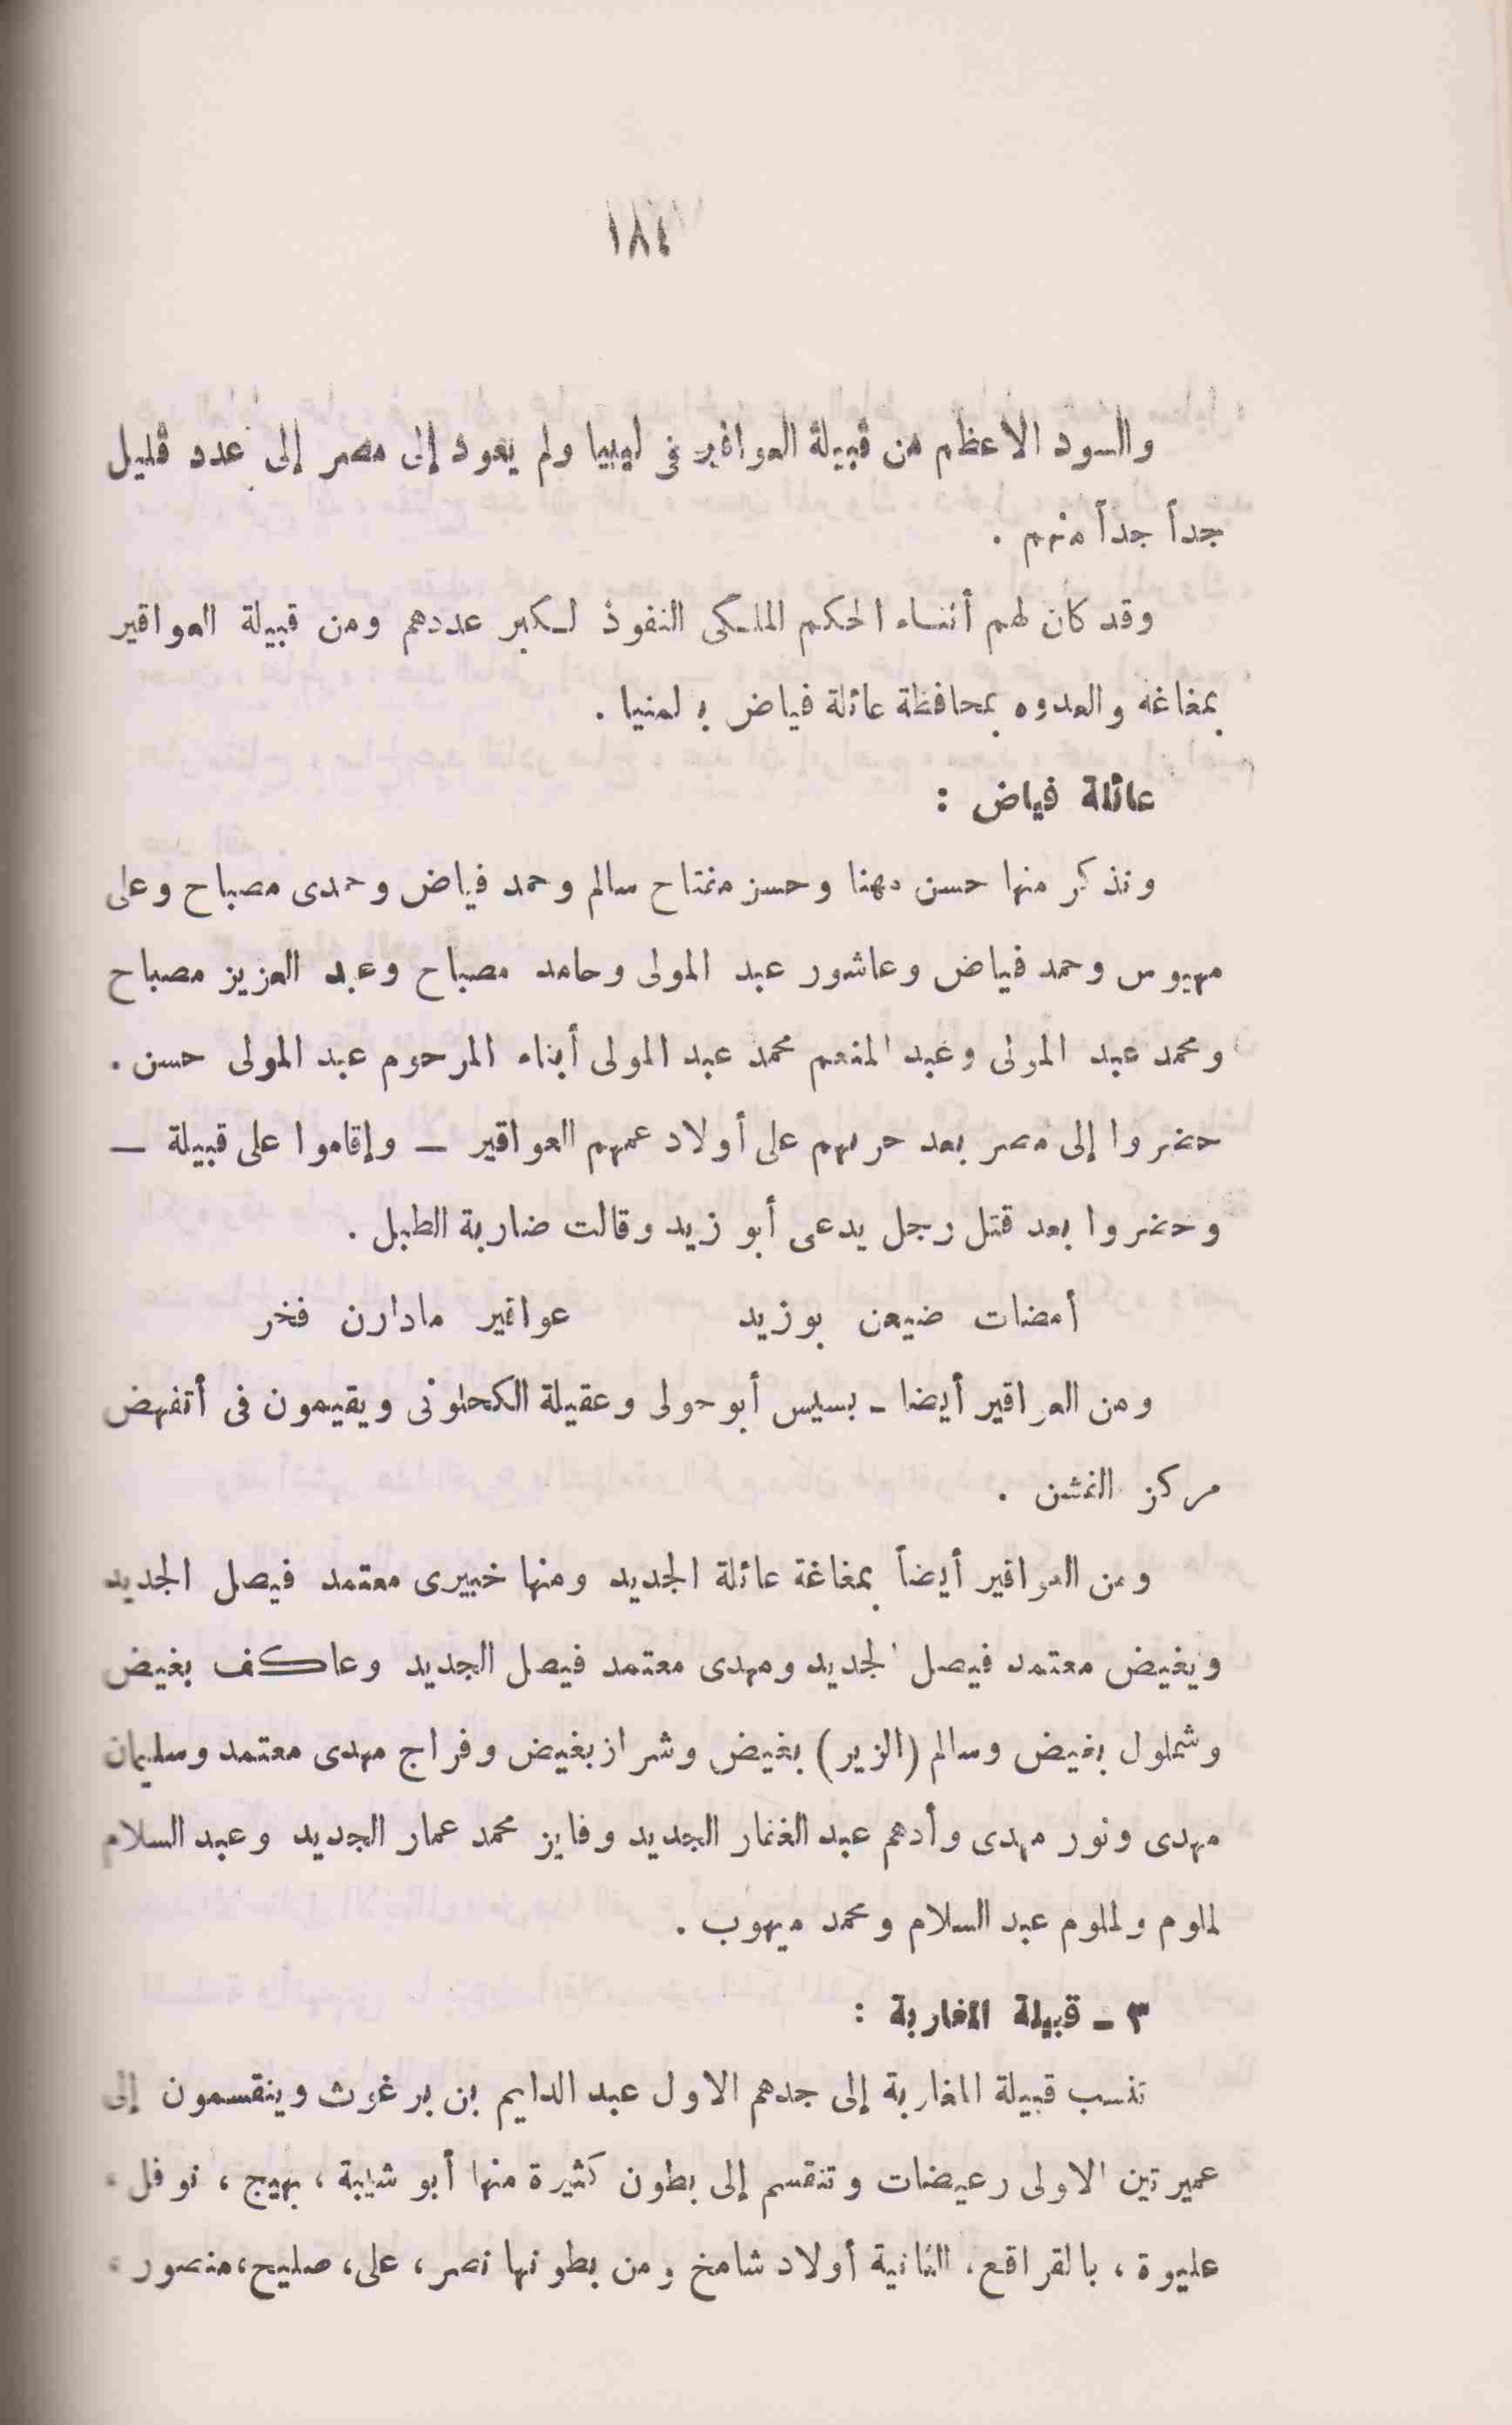 ١٨٤
والسود الاعظم من قبيلة العواقير فى ليبيا ولم يعود إلى مصر إلى عدد قليل
جداً جداً منهم .
وقد كان لهم أثناء الحكم الملكى النفوذ لكبر عددهم ومن قبيلة العواقير
بمغاغه والعدوه بمحافظة عائلة فياض بالمنيا .
عائلة فياض :
ونذكر منها حسن مهنا وحسن مفتاح سالم وحمد فياض وحمدى مصباح وعلى
مهيوس وحمد فياض وعاشور عبد المولى وحامد مصباح وعبد العزيز مصباح
ومحمد عبد المولى وعبد المنعم محمد عبد المولى أبناء المرحوم عبد المولى حسن .
حضروا إلى مصر بعد حربهم على أولاد عمهم العواقير – وإقاموا على قبيلة –
وحضروا بعد قتل رجل يدعى أبو زيد وقالت ضاربة الطبل .
أمضات ضيعن بوزيد عواقير مادارن فخر
ومن العواقير أيضا – بسيس أبو حولى وعقيلة الكحلونى ويقيمون فى أتفهض
مركز الفشن .
ومن العواقير أيضاً بمغاغة عائلة الجديد ومنها خبيرى معتمد فيصل الجديد
وبغيض معتمد فيصل الجديد ومهدى معتمد فيصل الجديد وعاكف بغيض
وشملول بغيض وسالم (الزير) بغيض وشراز بغيض وفراج مهدى معتمد وسليمان
مهدى ونور مهدى وأدهم عبد الغفار الجديد وفايز محمد عمار الجديد وعبد السلام
لملوم ولملوم عبد السلام ومحمد ميهوب .
٣ – قبيلة المغاربة :
تنسب قبيلة المغاربة إلى جدهم الاول عبد الدايم بن برغوث وينقسمون إلى
عميرتين الاولى رعيضات وتنقسم إلى بطون كثيرة منها أبو شيبة ، بهيج ، نوفل ،
عليوة ، بالقراقع ، الثانية أولاد شامخ ومن بطونها نصر ، على ، صليح ، منصور ،